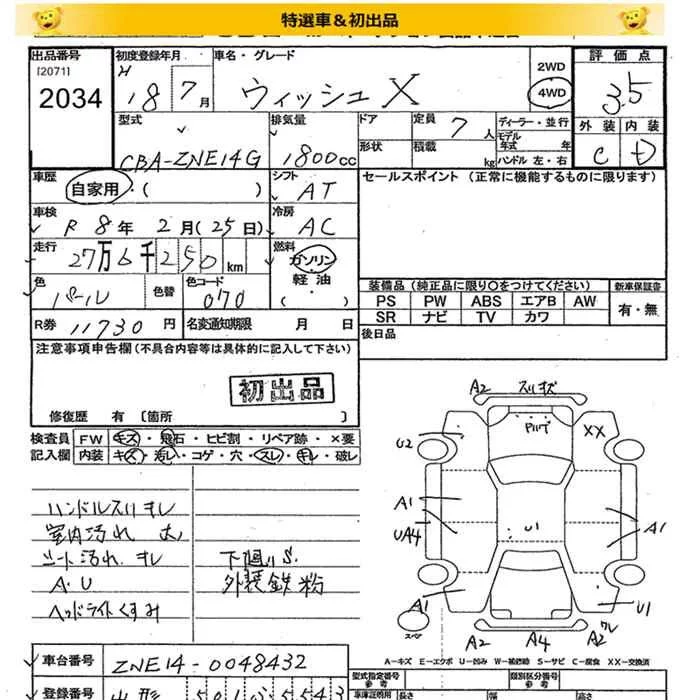 特選車＆初出品
出品番号
[2071]
2034
初度登録年月
H 18 7月
車名・グレード
ウィッシュ X
2WD
4WD
評価点
3.5
外装 内装
C D
型式
CBA-ZNE14G
排気量
1800cc
ドア
形状
定員 7人
積載 kg
ディーラー・並行
モデル年式 年
ハンドル 左・右
車歴
自家用・( )
シフト
AT
セールスポイント (正常に機能するものに限ります)
車検
R 8年 2月(25日)
冷房
AC
走行
27万6千250km
燃料
ガソリン
軽油
・( )
色
パール
色替
色コード
070
装備品 (純正品に限り○をつけてください)
新車保証書
PS PW ABS エアB AW
SR ナビ TV カワ
有・無
R券 11730円
名変通知期限 月 日
後日品
注意事項申告欄(不具合内容等は具体的に記入して下さい)
初出品
修復歴 有 [箇所 ]
検査員記入欄
FW キズ・飛石・ヒビ割・リペア跡・×要
内装 キズ・汚レ・コゲ・穴・スレ・キレ・破レ
ハンドルスリキレ
室内汚れ 大
シート汚れ、キレ
A・U
ヘッドライトくすみ
下廻りS.
外装鉄粉
A2 スリキズ
XX
U2
A1
UA4
U1
A1
A1
U1
スペア
A2 A4 A2 ワレ
A－キズ E－エクボ U－凹み W－補修跡 S－サビ C－腐食 XX－交換済
車台番号 ZNE14-0048432
登録番号
型式指定番号
参考
類別区分番号
参考
車庫証明用
長さ
幅
高さ